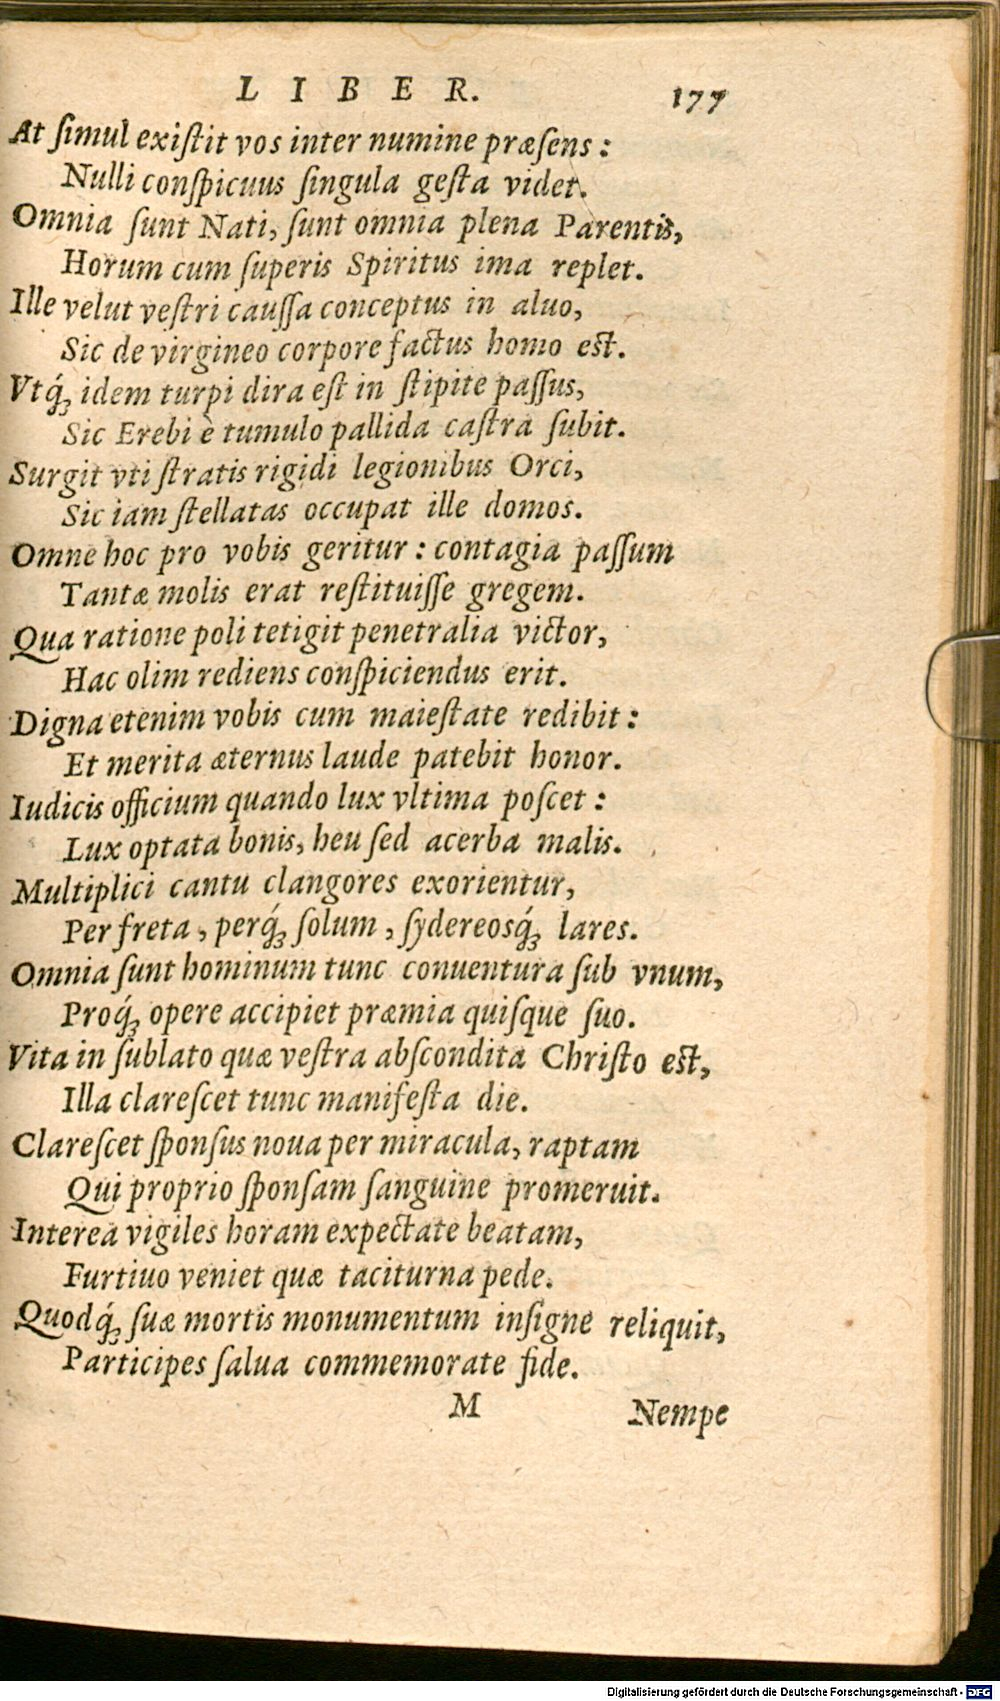 LIBER. 177
At ſimul exiſtit vos inter numine præſens:
Nulli conſpicuus ſingula geſta videt.
Omnia ſunt Nati, ſunt omnia plena Parentis,
Horum cum ſuperis Spiritus ima replet.
Ille velut veſtri cauſſa conceptus in aluo,
Sic de virgineo corpore factus homo eſt.
Vtq́ꝫ idem turpi dira eſt in ſtipite paſſus,
Sic Erebi è tumulo pallida caſtra ſubit.
Surgit vti ſtratis rigidi legionibus Orci,
Sic iam ſtellatas occupat ille domos.
Omne hoc pro vobis geritur: contagia paſſum
Tantæ molis erat reſtituiſſe gregem.
Qua ratione poli tetigit penetralia victor,
Hac olim rediens conſpiciendus erit.
Digna etenim vobis cum maieſtate redibit:
Et merita æternus laude patebit honor.
Iudicis officium quando lux vltima poſcet:
Lux optata bonis, heu ſed acerba malis.
Multiplici cantu clangores exorientur,
Per freta, perq́ꝫ ſolum, ſydereosq́ꝫ lares.
Omnia ſunt hominum tunc conuentura ſub vnum,
Proq́ꝫ opere accipiet præmia quiſque ſuo.
Vita in ſublato quæ veſtra abſcondita Chriſto eſt,
Illa clareſcet tunc manifeſta die.
Clareſcet ſponſus noua per miracula, raptam
Qui proprio ſponſam ſanguine promeruit.
Interea vigiles horam expectate beatam,
Furtiuo veniet quæ taciturna pede.
Quodq́ꝫ ſuæ mortis monumentum inſigne reliquit,
Participes ſalua commemorate fide.
M Nempe
Digitalisierung gefördert durch die Deutsche Forschungsgemeinschaft - DFG